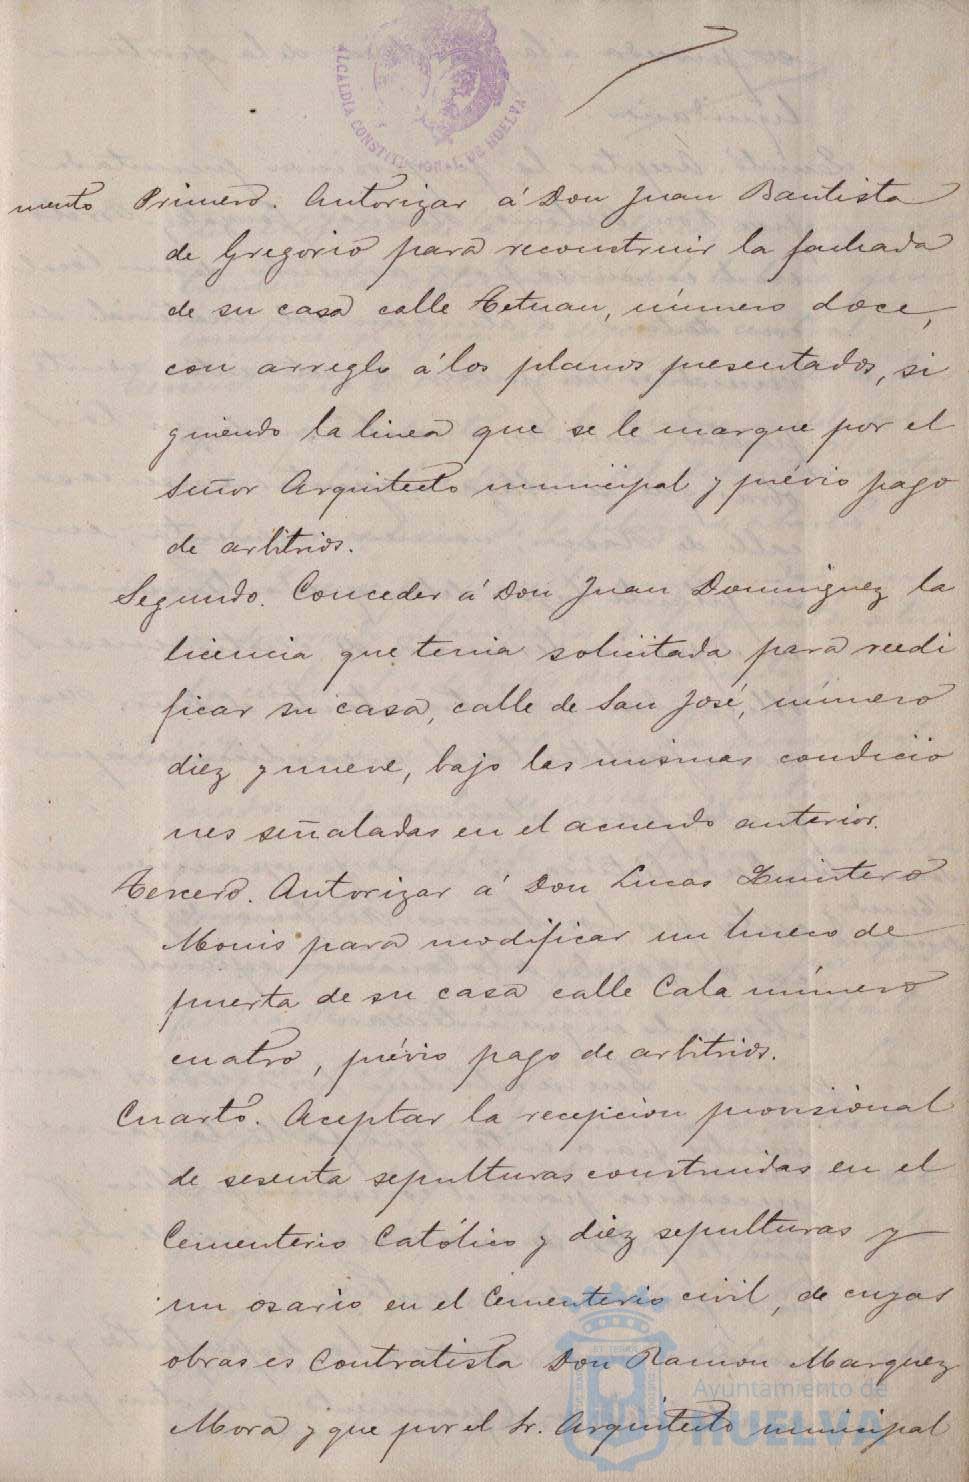 ALCALDÍA CONSTITUCIONAL DE HUELVA
mento Primero. Autorizar á Don Juan Bautista
de Gregorio para reconstruir la fachada
de su casa calle Tetuan, número doce,
con arreglo á los planos presentados, si
guiendo la linea que se le marque por el
Señor Arquitecto municipal y prévio pago
de arbitrios.
Segundo. Conceder á Don Juan Dominguez la
licencia que tenia solicitada para reedi
ficar su casa, calle de San José, número
diez y nueve, bajo las mismas condicio
nes señaladas en el acuerdo anterior.
Tercero. Autorizar á Don Lucas Quintero
Monis para modificar un hueco de
puerta de su casa calle Cala número
cuatro, prévio pago de arbitrios.
Cuarto. Aceptar la recepcion provisional
de sesenta sepulturas construidas en el
Cementerio Católico y diez sepulturas y
un osario en el Cementerio civil, de cuyas
obras es Contratista Don Ramon Marquez
Mora y que por el Sr. Arquitecto municipal
Ayuntamiento de
HUELVA